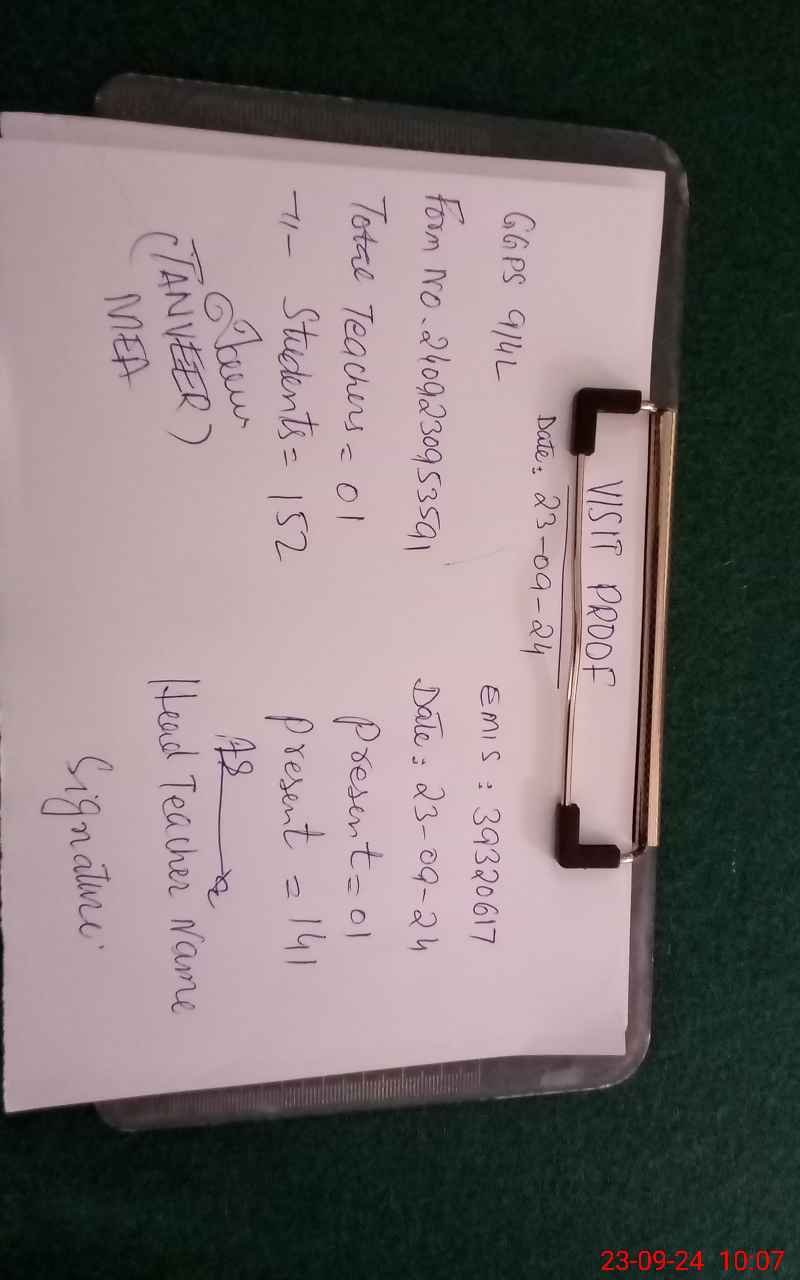 VISIT PROOF
Date: 23-09-24
GGPS 9/4L EMIS: 39320617
Form No. 2409230953591 Date: 23-09-24
Total Teachers = 01 Present = 01
-"- Students = 152 Present = 141
(TANVEER) Head Teacher Name
MEA Signature.
23-09-24 10:07